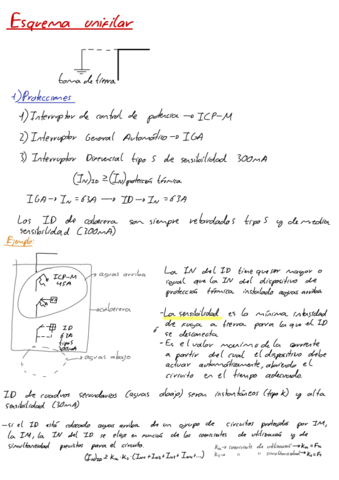 Esquema unifilar
toma de tierra
1) Protecciones
1) Interruptor de control de potencia → ICP-M
2) Interruptor General Automático → IGA
3) Interruptor Diferencial tipo S de sensibilidad 300mA
(IN)ID ≥ (IN)protección térmica
IGA → IN = 63A → ID → IN = 63A
Los ID de cabecera son siempre retardados tipo S y de media
sensibilidad (300mA)
Ejemplo:
aguas arriba
ICP-M
45A
cabecera
ID
63A
tipo S
300mA
aguas abajo
La IN del ID tiene que ser mayor o
igual que la IN del dispositivo de
protección térmica instalado aguas arriba
- La sensibilidad es la mínima intensidad
de fuga a tierra para la que el ID
se desconecta
- Es el valor máximo de la corriente
a partir del cual el dispositivo debe
actuar automáticamente, abriendo el
circuito en el tiempo adecuado
ID de cuadros secundarios (aguas abajo) seran instantáneos (tipo K) y alta
sensibilidad (30mA)
- si el ID está colocado aguas arriba de un grupo de circuitos protegidos por IM,
la IM, la IN del ID se elige en función de los coeficientes de utilización y de
simultaneidad previstos para el circuito.
(IN)ID ≥ Ku · Ks · (IM1+IM2+IM3+IM4+...)
Ku → coeficiente de utilización → Ku = Fu
Ks → " " simultaneidad → Ks = Fs